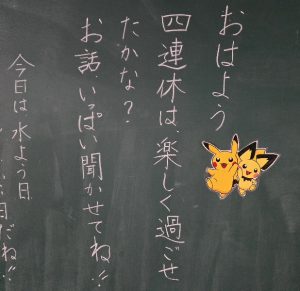 おはよう
四連休は、楽しく過ごせ
たかな？
お話、いっぱい聞かせてね!!
今日は水よう日
日だね!!